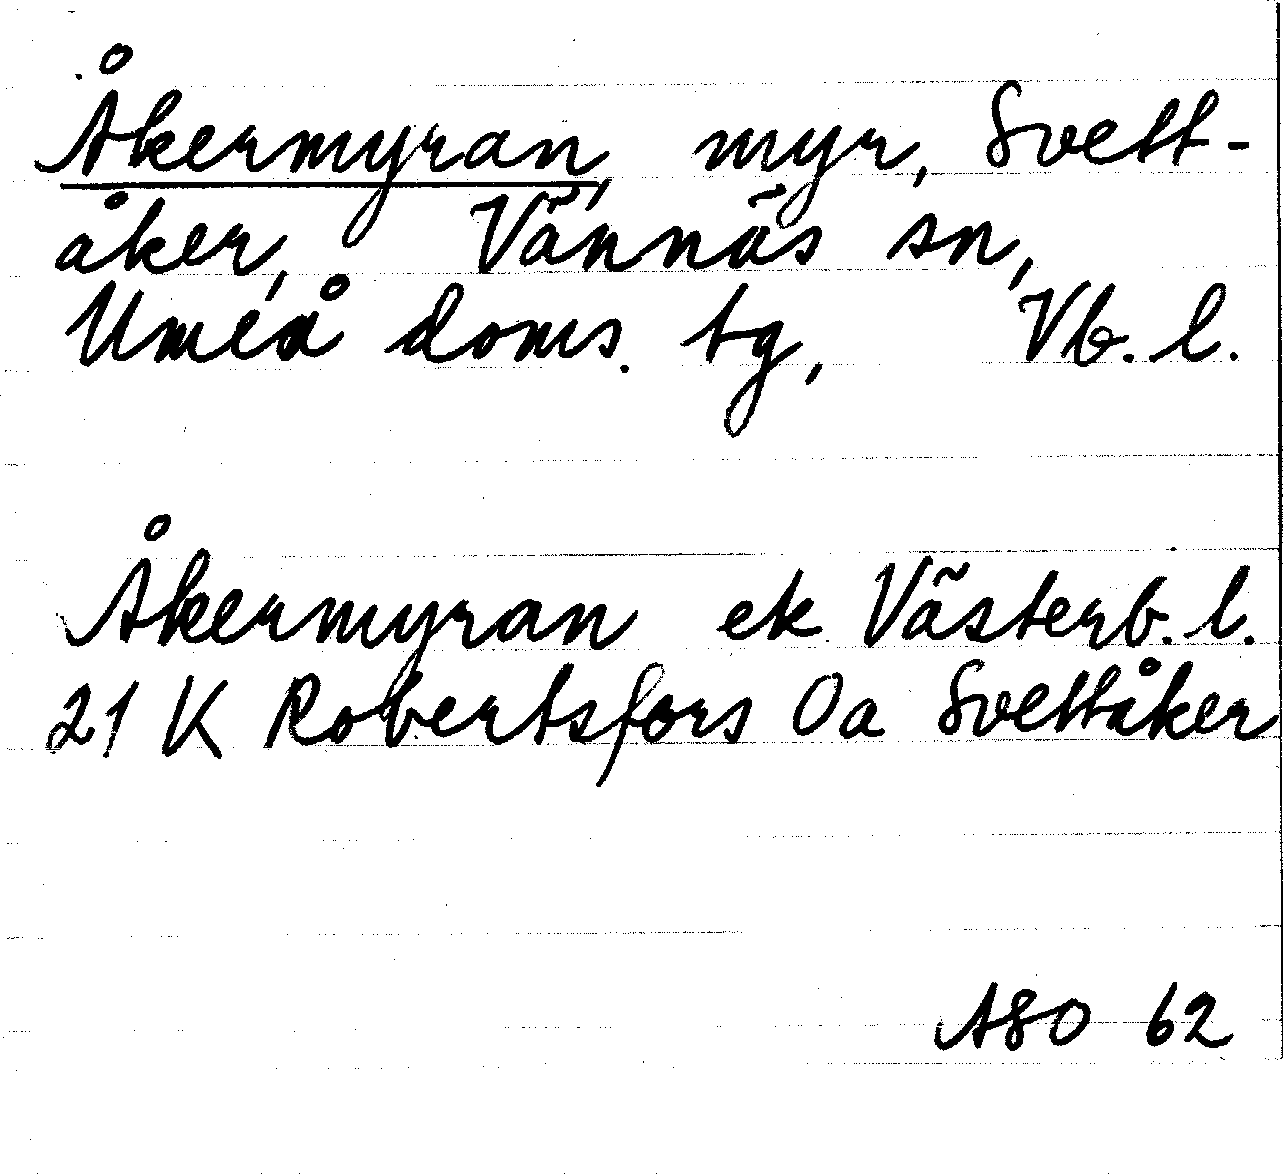 Åkermyran, myr, Svett-
åker, Vännäs sn,
Umeå doms. tg, Vb. l.
Åkermyran ek Västerb. l.
21 K Robertsfors Oa Svettåker
ASO 62